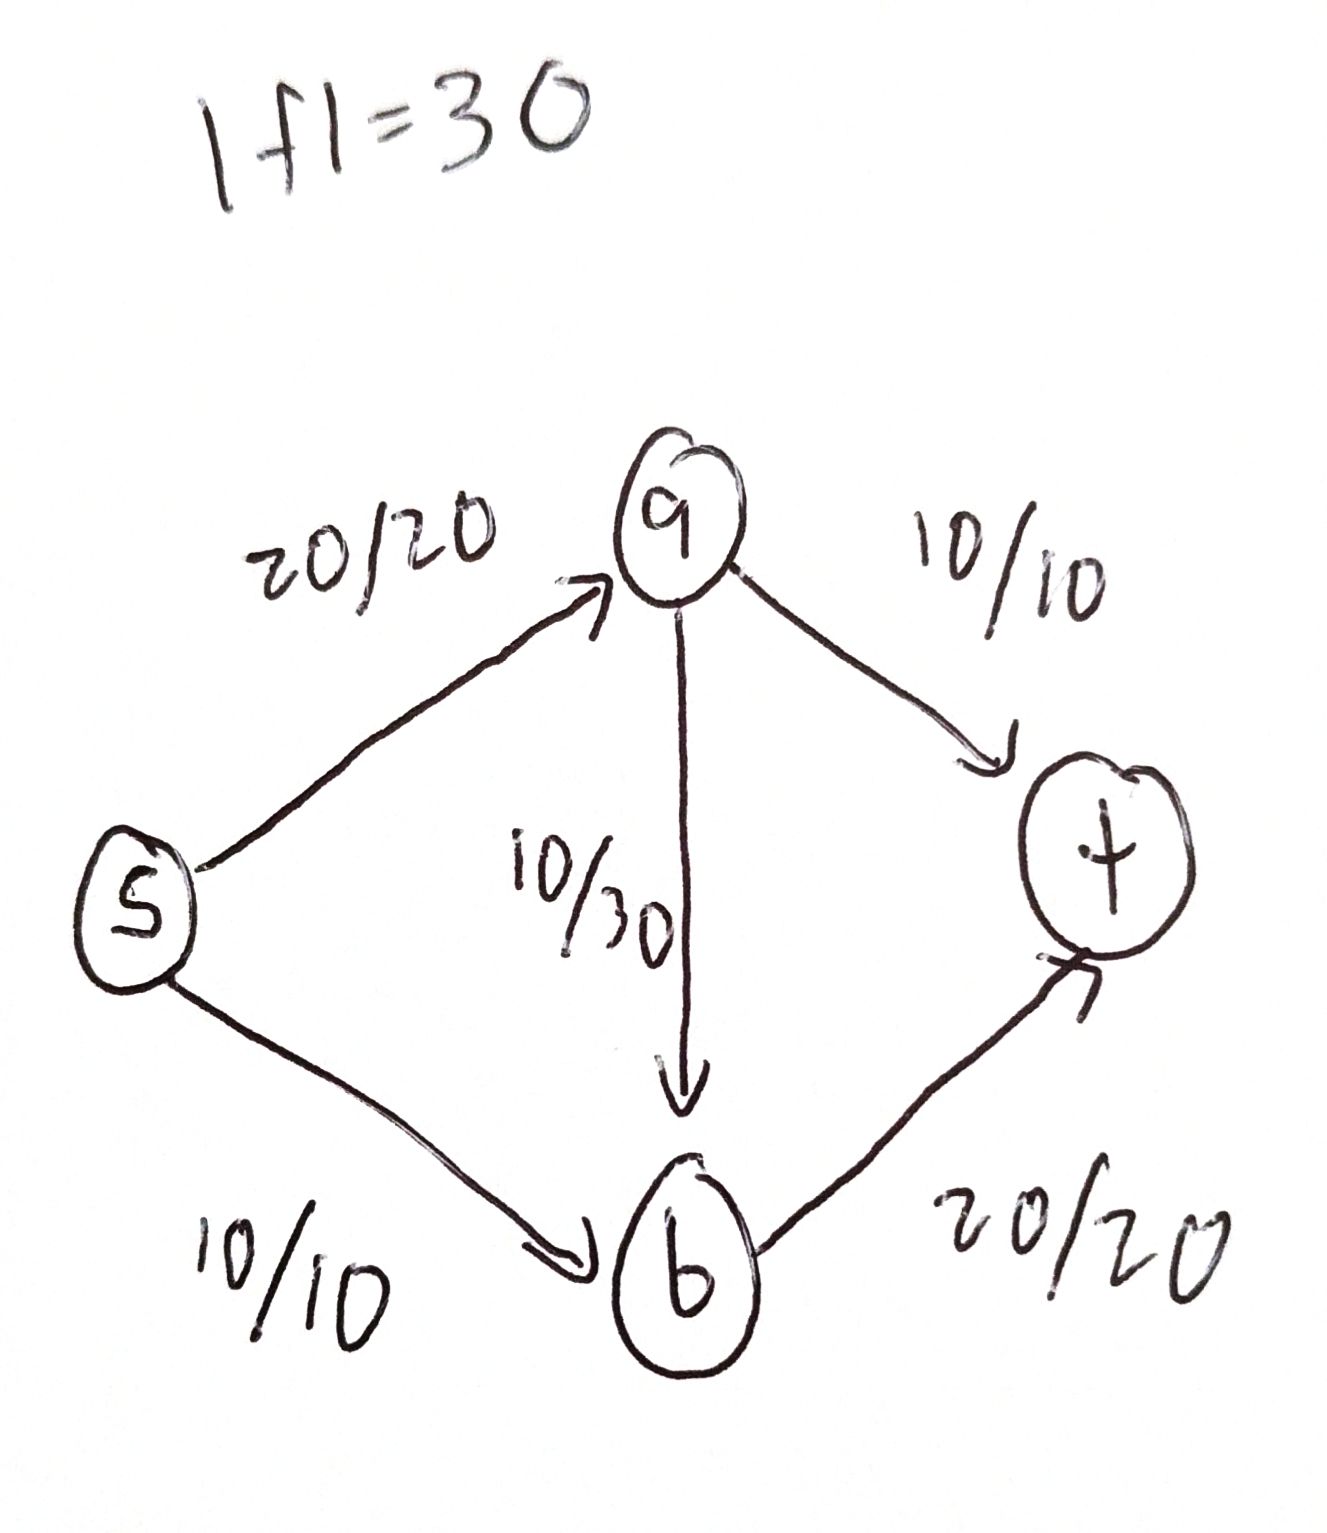 |f|=30
a
20/20
10/10
s
10/30
t
10/10
b
20/20